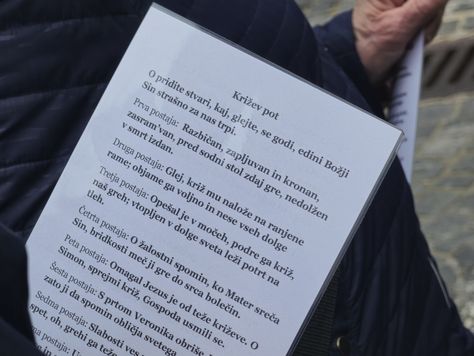 Križev pot
O pridite stvari, kaj, glejte, se godi, edini Božji
Sin strašno za nas trpi.
Prva postaja: Razbičan, zapljuvan in kronan,
zasram'van, pred sodni stol zdaj gre, nedolžen
v smrt izdan.
Druga postaja: Glej, križ mu nalože na ranjene
rame; objame ga voljno in nese vseh dolge
Tretja postaja: Opešal je v močeh, podre ga križ,
naš greh; vtopljen v dolge sveta leži potrt na
tleh.
Četrta postaja: O žalostni spomin, ko Mater sreča
Sin, bridkosti meč ji gre do srca bolečin.
Peta postaja: Omagal Jezus je od teže križeve. O
Simon, sprejmi križ, Gospoda usmili se.
Šesta postaja: S prtom Veronika obriše
zato ji da spomin obličja svetega
Sedma postaja: Slabosti ves
spet, oh, grehi ga teže